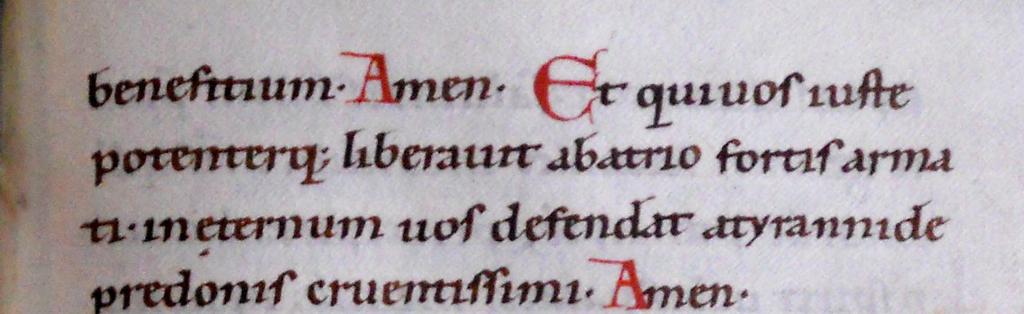 benefitium· Amen· Et qui uos iuste
potenterq; liberauit ab atrio fortis arma
ti· in ęternum uos defendat a tyrannide
predonis cruentissimi· Amen·